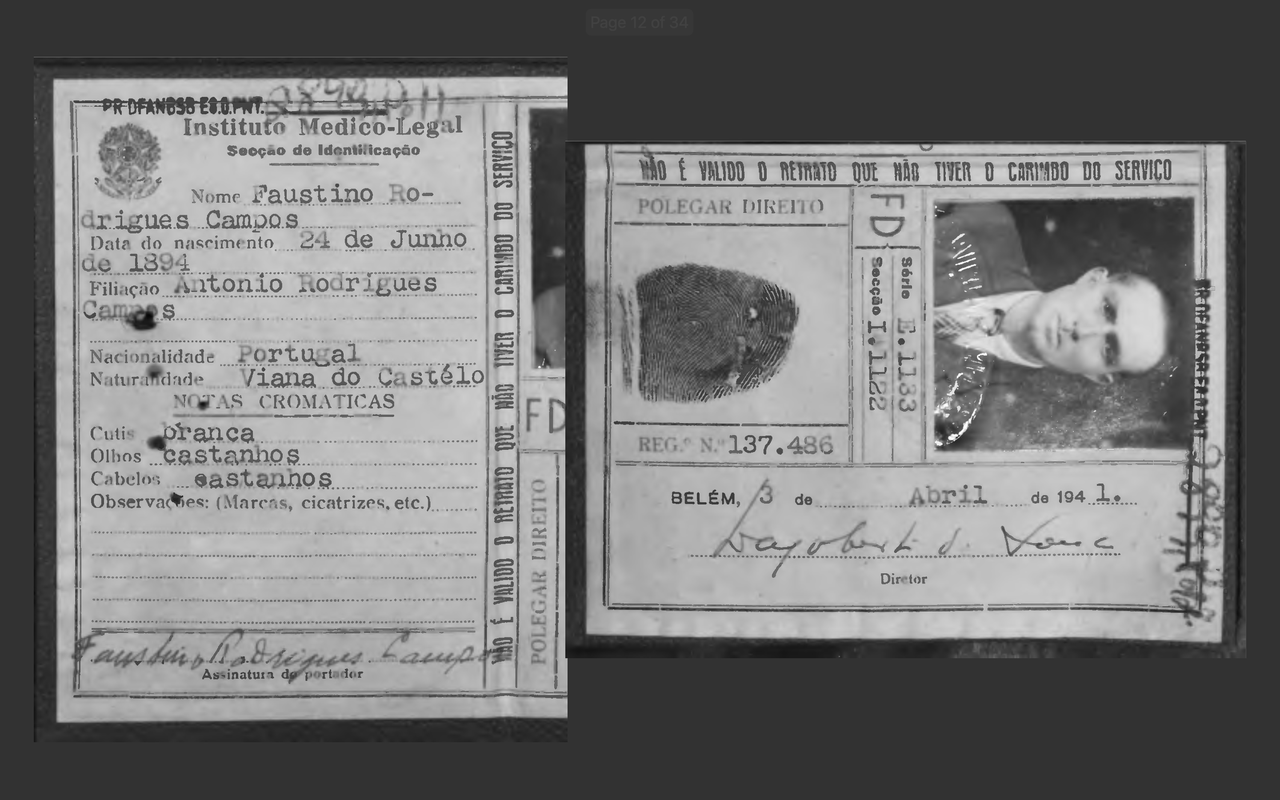 Page 12 of 34
PR DFANBSB E8.0.PNT.
Instituto Medico-Legal
Secção de Identificação
Nome Faustino Ro-
drigues Campos
Data do nascimento 24 de Junho
de 1894
Filiação Antonio Rodrigues
Campos
Nacionalidade Portugal
Naturalidade Viana do Castélo
NOTAS CROMATICAS
Cutis branca
Olhos castanhos
Cabelos castanhos
Observações: (Marcas, cicatrizes, etc.)
Faustino Rodrigues Campos
Assinatura do portador
NÃO É VALIDO O RETRATO QUE NÃO TIVER O CARIMBO DO SERVIÇO
FD
POLEGAR DIREITO
NÃO É VALIDO O RETRATO QUE NÃO TIVER O CARIMBO DO SERVIÇO
POLEGAR DIREITO
FD
Série E.1133
Secção I.1122
REG.º N.º 137.486
BELÉM, 3 de Abril de 1941.
Diretor